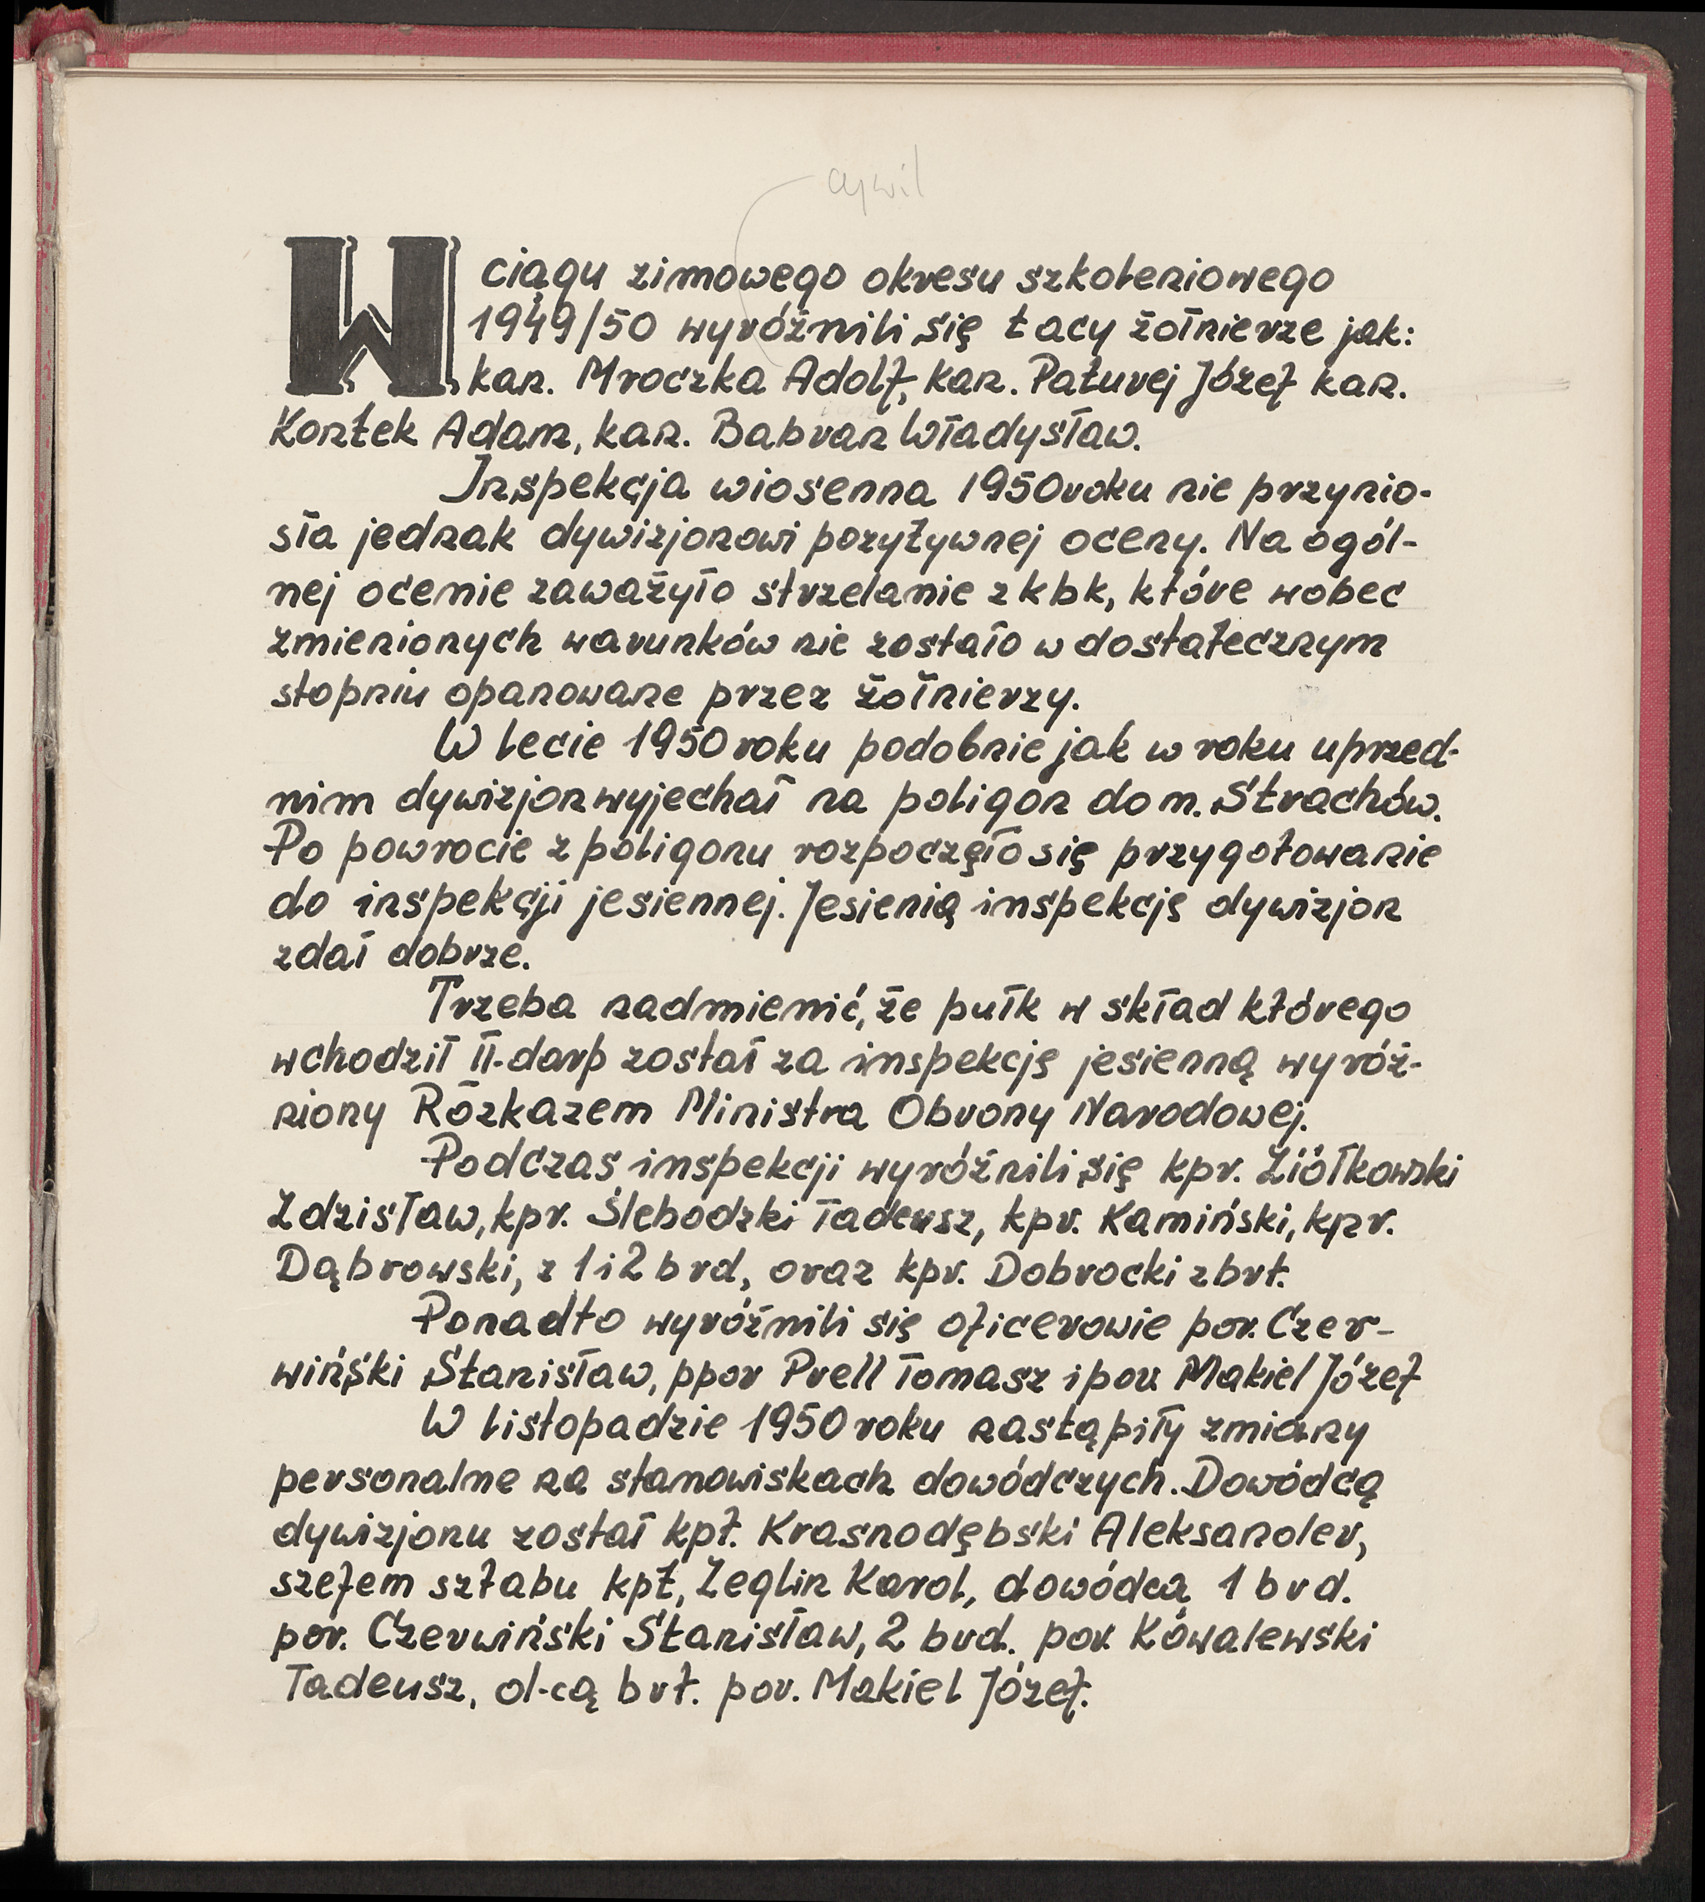 cywil
W ciągu zimowego okresu szkoleniowego
1949/50 wyróżnili się tacy żołnierze jak:
kan. Mroczka Adolf, kan. Paturej Józef kan.
Kontek Adam, kan. Babran Władysław.
Inspekcja wiosenna 1950 roku nie przynio-
sła jednak dywizjonowi pozytywnej oceny. Na ogól-
nej ocenie zaważyło strzelanie z kbk, które wobec
zmienionych warunków nie zostało w dostatecznym
stopniu opanowane przez żołnierzy.
W lecie 1950 roku podobnie jak w roku uprzed-
nim dywizjon wyjechał na poligon do m. Strachów.
Po powrocie z poligonu rozpoczęło się przygotowanie
do inspekcji jesiennej. Jesienią inspekcję dywizjon
zdał dobrze.
Trzeba nadmienić, że pułk w skład którego
wchodził II-darp został za inspekcję jesienną wyróż-
niony Rozkazem Ministra Obrony Narodowej.
Podczas inspekcji wyróżnili się kpr. Ziółkowski
Zdzisław, kpr. Ślebodzki Tadeusz, kpr. Kamiński, kpr.
Dąbrowski, z 1 i 2 brd, oraz kpr. Dobrocki z brt.
Ponadto wyróżnili się oficerowie por. Czer-
wiński Stanisław, ppor Prell Tomasz i por Makiel Józef
W listopadzie 1950 roku nastąpiły zmiany
personalne na stanowiskach dowódczych. Dowódcą
dywizjonu został kpt. Krasnodębski Aleksander,
szefem sztabu kpt, Zeglin Karol, dowódcą 1 brd.
por. Czerwiński Stanisław, 2 brd. por. Kowalewski
Tadeusz, d-cą brt. por. Makiel Józef.